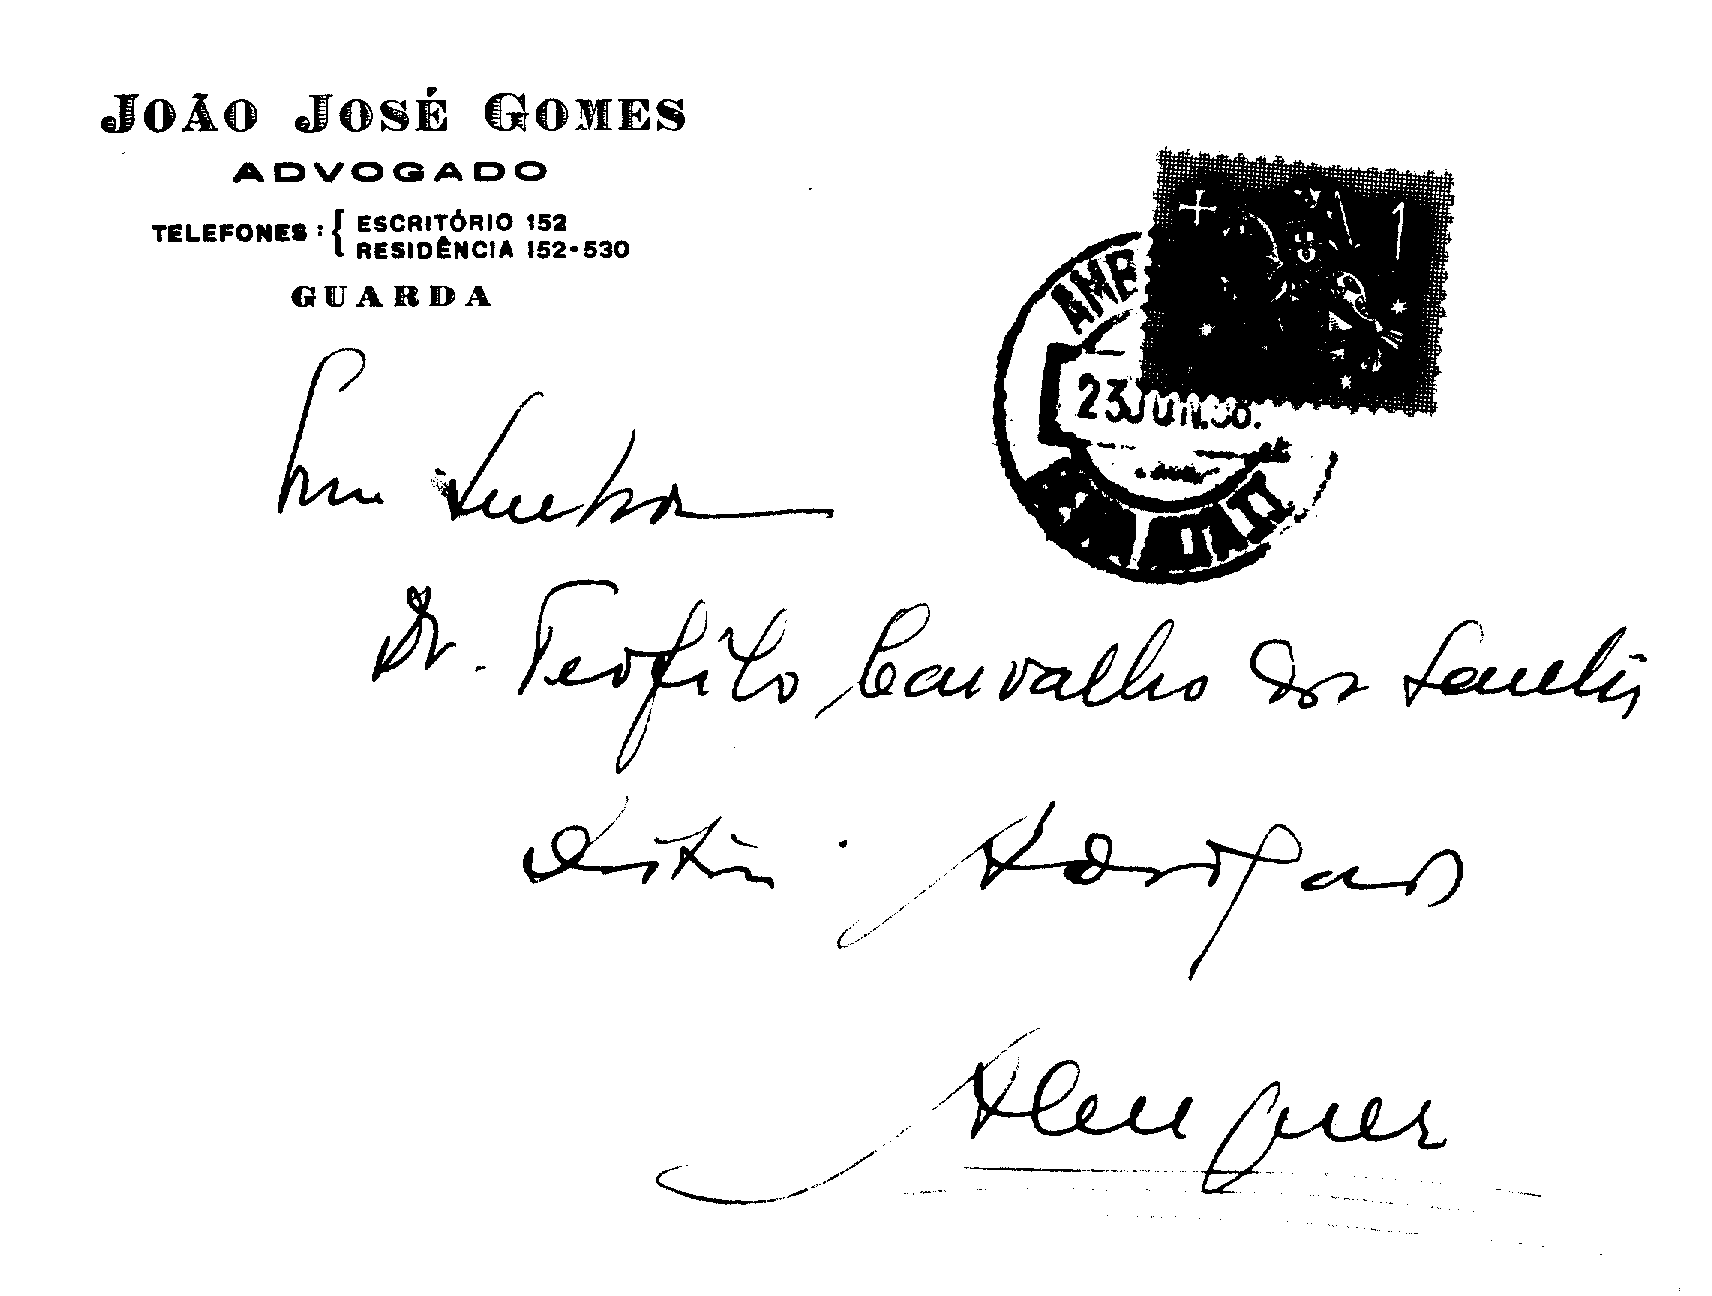 JOÃO JOSÉ GOMES
ADVOGADO
TELEFONES: { ESCRITÓRIO 152
RESIDÊNCIA 152-530
GUARDA
1
AMB
23 JUN.
Dr. Teofilo Carvalho dos Santos
Advogado
Alenquer